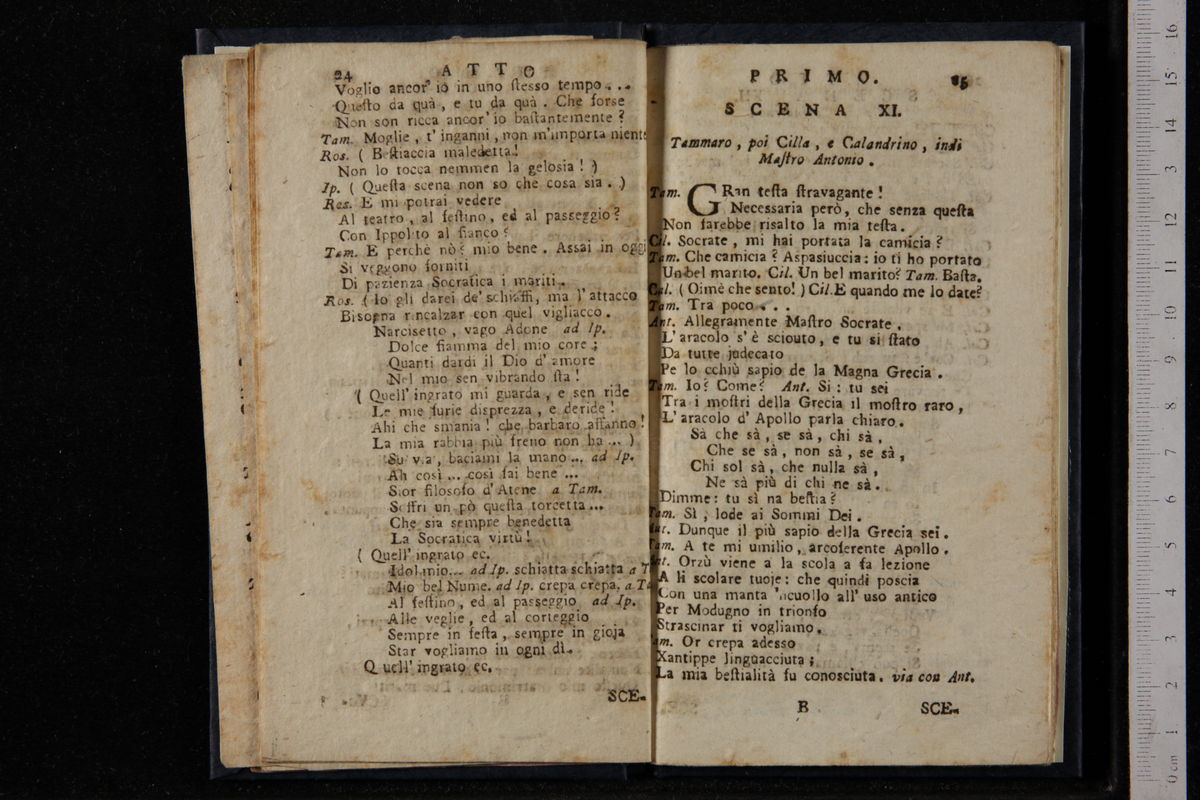 24 ATTO
Voglio ancor' io in uno stesso tempo...
Questo da quà, e tu da quà. Che forse
Non son ricca ancor' io bastantemente?
Tam. Moglie, t' inganni, non m'importa niente
Ros. ( Bestiaccia maledetta!
Non lo tocca nemmen la gelosia! )
Ip. ( Questa scena non so che cosa sia. )
Ros. E mi potrai vedere
Al teatro, al festino, ed al passeggio?
Con Ippolito al fianco?
Tam. E perchè nò? mio bene. Assai in oggi
Si veggono forniti
Di pazienza Socratica i mariti.
Ros. ( Io gli darei de' schiaffi, ma l' attacco
Bisogna rincalzar con quel vigliacco.
Narcisetto, vago Adone ad Ip.
Dolce fiamma del mio core;
Quanti dardi il Dio d' amore
Nel mio sen vibrando sta!
( Quell' ingrato mi guarda, e sen ride
Le mie furie disprezza, e deride!
Ahi che smania! che barbaro affanno!
La mia rabbia più freno non ha... )
Su via, baciami la mano... ad Ip.
Ah così... così fai bene...
Sior filosofo d' Atene a Tam.
Soffri un pò questa torcetta...
Che sia sempre benedetta
La Socratica virtù!
( Quell' ingrato ec.
Idol mio... ad Ip. schiatta schiatta a T
Mio bel Nume. ad Ip. crepa crepa. a Ta
Al festino, ed al passeggio ad Ip.
Alle veglie, ed al corteggio
Sempre in festa, sempre in gioja
Star vogliamo in ogni dì.
Quell' ingrato ec.
SCE-
PRIMO. 25
SCENA XI.
Tammaro, poi Cilla, e Calandrino, indi
Mastro Antonio.
Tam. GRan testa stravagante!
Necessaria però, che senza questa
Non sarebbe risalto la mia testa.
Cil. Socrate, mi hai portata la camicia?
Tam. Che camicia? Aspasiuccia: io ti ho portato
Un bel marito. Cil. Un bel marito? Tam. Basta.
Cal. ( Oimè che sento! ) Cil. E quando me lo date?
Tam. Tra poco...
Ant. Allegramente Mastro Socrate.
L' aracolo s' è sciouto, e tu si stato
Da tutte judecato
Pe lo cchiù sapio de la Magna Grecia.
Tam. Io? Come? Ant. Si: tu sei
Tra i mostri della Grecia il mostro raro,
L' aracolo d' Apollo parla chiaro.
Sa che sà, se sà, chi sà,
Che se sà, non sà, se sà,
Chi sol sà, che nulla sà,
Ne sà più di chi ne sà.
Dimme: tu sì na bestia?
Tam. Sì, lode ai Sommi Dei.
Ant. Dunque il più sapio della Grecia sei.
Tam. A te mi umilio, arcoferente Apollo.
Ant. Orzù viene a la scola a fa lezione
A li scolare tuoje: che quindi poscia
Con una manta 'ncuollo all' uso antico
Per Modugno in trionfo
Strascinar ti vogliamo.
Tam. Or crepa adesso
Xantippe linguacciuta;
La mia bestialità fu conosciuta. via con Ant.
B SCE-
0 cm 1 2 3 4 5 6 7 8 9 10 11 12 13 14 15 16